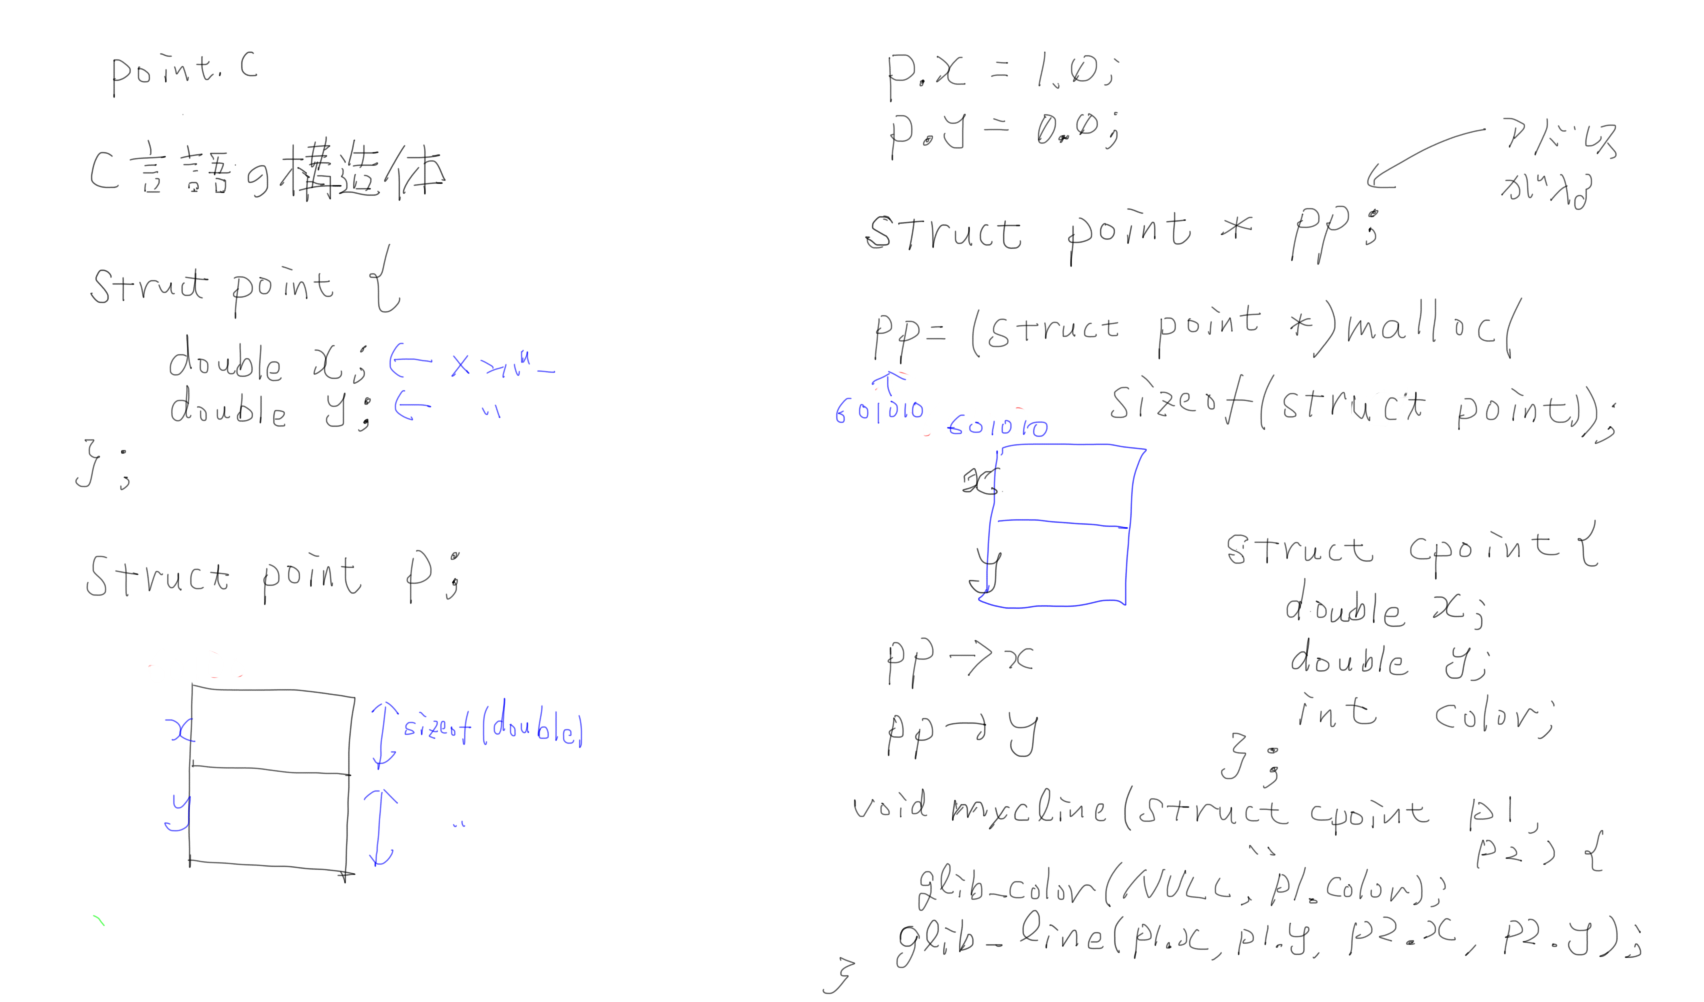 point.c
C言語の構造体
struct point {
double x; ← メンバー
double y; ← 〃
};
struct point p;
x
sizeof(double)
y
〃
p.x = 1.0;
p.y = 0.0;
アドレス
が入る
struct point * pp;
pp = (struct point *)malloc(
sizeof(struct point));
601010
601010
x
y
pp→x
pp→y
struct cpoint {
double x;
double y;
int color;
};
void mycline(struct cpoint p1,
〃 p2) {
glib_color(NULL, p1.color);
glib_line(p1.x, p1.y, p2.x, p2.y);
}